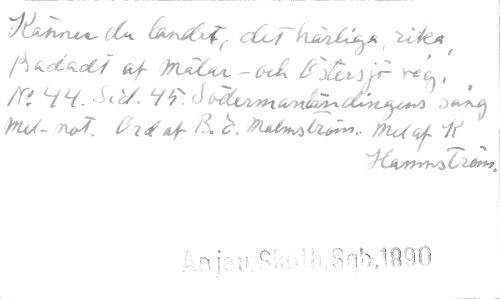 Känner du landet, det härliga, rika,
Badadt af mälar - och Östersjö våg,
No 44. Sid. 45. Södermanländingens sång
Mel-not. Ord af B. E. Malmström. Mel af K
Hammström.
Anjou, Skolh. Sgb, 1890